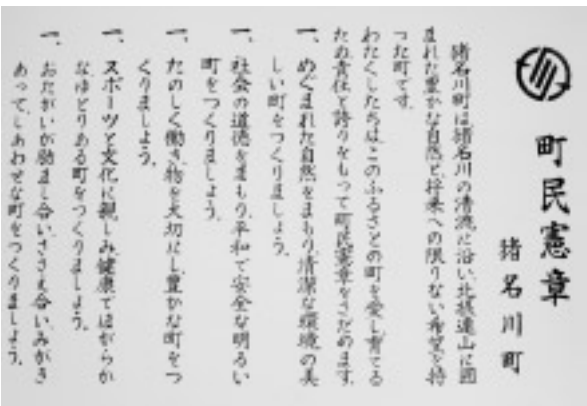 町民憲章
猪名川町
猪名川町は猪名川の清流に沿い、北摂連山に囲
まれた豊かな自然と、将来への限りない希望を持
った町です。
わたくしたちは、このふるさとの町を愛し育てる
ため責任と誇りをもって町民憲章をさだめます。
一、めぐまれた自然をまもり、清潔な環境の美
しい町をつくりましょう。
一、社会の道徳をまもり、平和で安全な明るい
町をつくりましょう。
一、たのしく働き、物を大切にし、豊かな町をつ
くりましょう。
一、スポーツと文化に親しみ、健康でほがらか
なゆとりある町をつくりましょう。
一、おたがいが励まし合い、ささえ合い、みがき
あって、しあわせな町をつくりましょう。